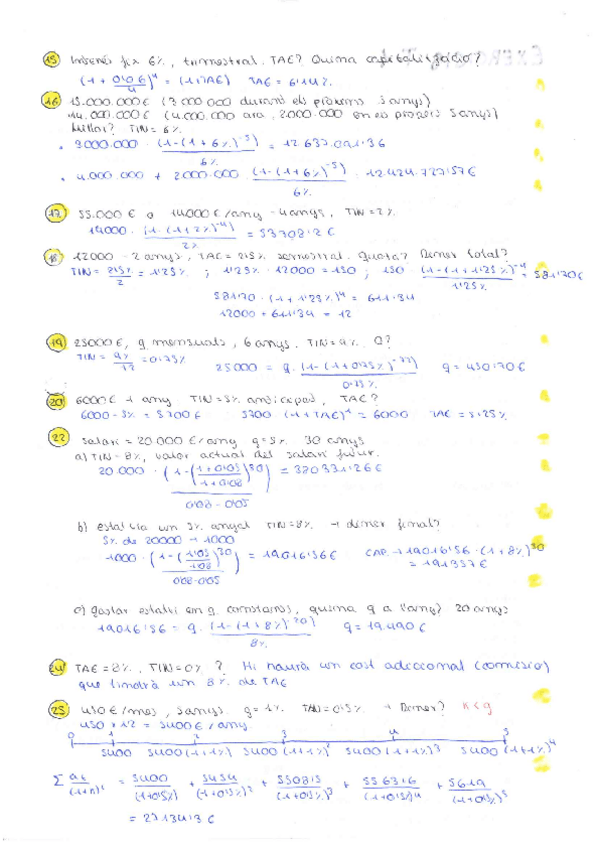 15 Interès fix 6%, trimestral. TAE? Quina capitalització?
(1 + 0'06/4)^4 = (1+TAE) TAE = 6'14%.
16 15.000.000€ (3 000 000 durant els pròxims 5 anys)
14.000.000€ (4.000.000 ara, 2.000.000 en els pròxims 5 anys)
Millor? TIN = 6%
· 3000.000 · (1-(1+6%)^-5) / 6% = 12.637.091'36
· 4.000.000 + 2000.000 · (1-(1+6%)^-5) / 6% = 12.424.727'57€
17 55.000€ o 14000€/any - 4 anys, TIN = 2%
14000 · (1-(1+2%)^-4) / 2% = 53308'2€
18 12000 - 2 anys, TAE = 2'5% semestral. Quota? Diner total?
TIN = 2'5%/2 = 1'25% ; 1'25% · 12000 = 150 ; 150 · (1-(1+1'25%)^-4) / 1'25% = 581'70€
581'70 · (1+1'25%)^4 = 611'34
12000 + 611'34 = 12
19 25000€, q mensuals, 6 anys. TIN = 9%. Q?
TIN = 9%/12 = 0'75% 25.000 = q · (1-(1+0'75%)^-72) / 0'75% q = 450'70€
20 6000€ 1 any TIN = 5% anticipad, TAE?
6000 - 5% = 5700€ 5700 (1+TAE)^1 = 6000 TAE = 5'25%
22 Salari = 20.000€/any q = 5% 30 anys
a) TIN = 8%, valor actual del salari futur.
20.000 · (1-(1+0'05/1+0'08)^30) / 0'08-0'05 = 380331'26€
b) estalvia un 5% anyal TIN = 8% → diner final?
5% de 20000 → 1000
1000 · (1-(1'05/1'08)^30) / 0'08-0'05 = 19016'56€ CAP. → 19016'56 · (1+8%)^30
= 191357€
c) gastar estalvi em q. constants, quina q a l'any? 20 anys
19016'56 = q. (1-(1+8%)^-20) / 8% q = 19.490€
24 TAE = 8%, TIN = 0%? Hi haurà un cost addicional (comissió)
que tindrà un 8% de TAE
25 450€/mes, 5 anys. q = 1% TAN = 0'5% → Diner? k < q
450 × 12 = 5400€/any
0 1 2 3 4 5
5400 5400 (1+1%) 5400 (1+1%)^2 5400 (1+1%)^3 5400 (1+1%)^4
Σ at/(1+k)^t = 5400/(1+0'5%) + 5454/(1+0'5%)^2 + 5508'5/(1+0'5%)^3 + 5563'6/(1+0'5%)^4 + 5619/(1+0'5%)^5
= 27134'3€